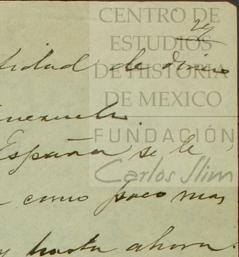 CENTRO DE
24
ESTUDIOS
tidad de
DE HISTORIA
DE MEXICO
Venezuela.
FUNDACIÓN
España se le
Carlos Slim
como poco mas
y hasta ahora